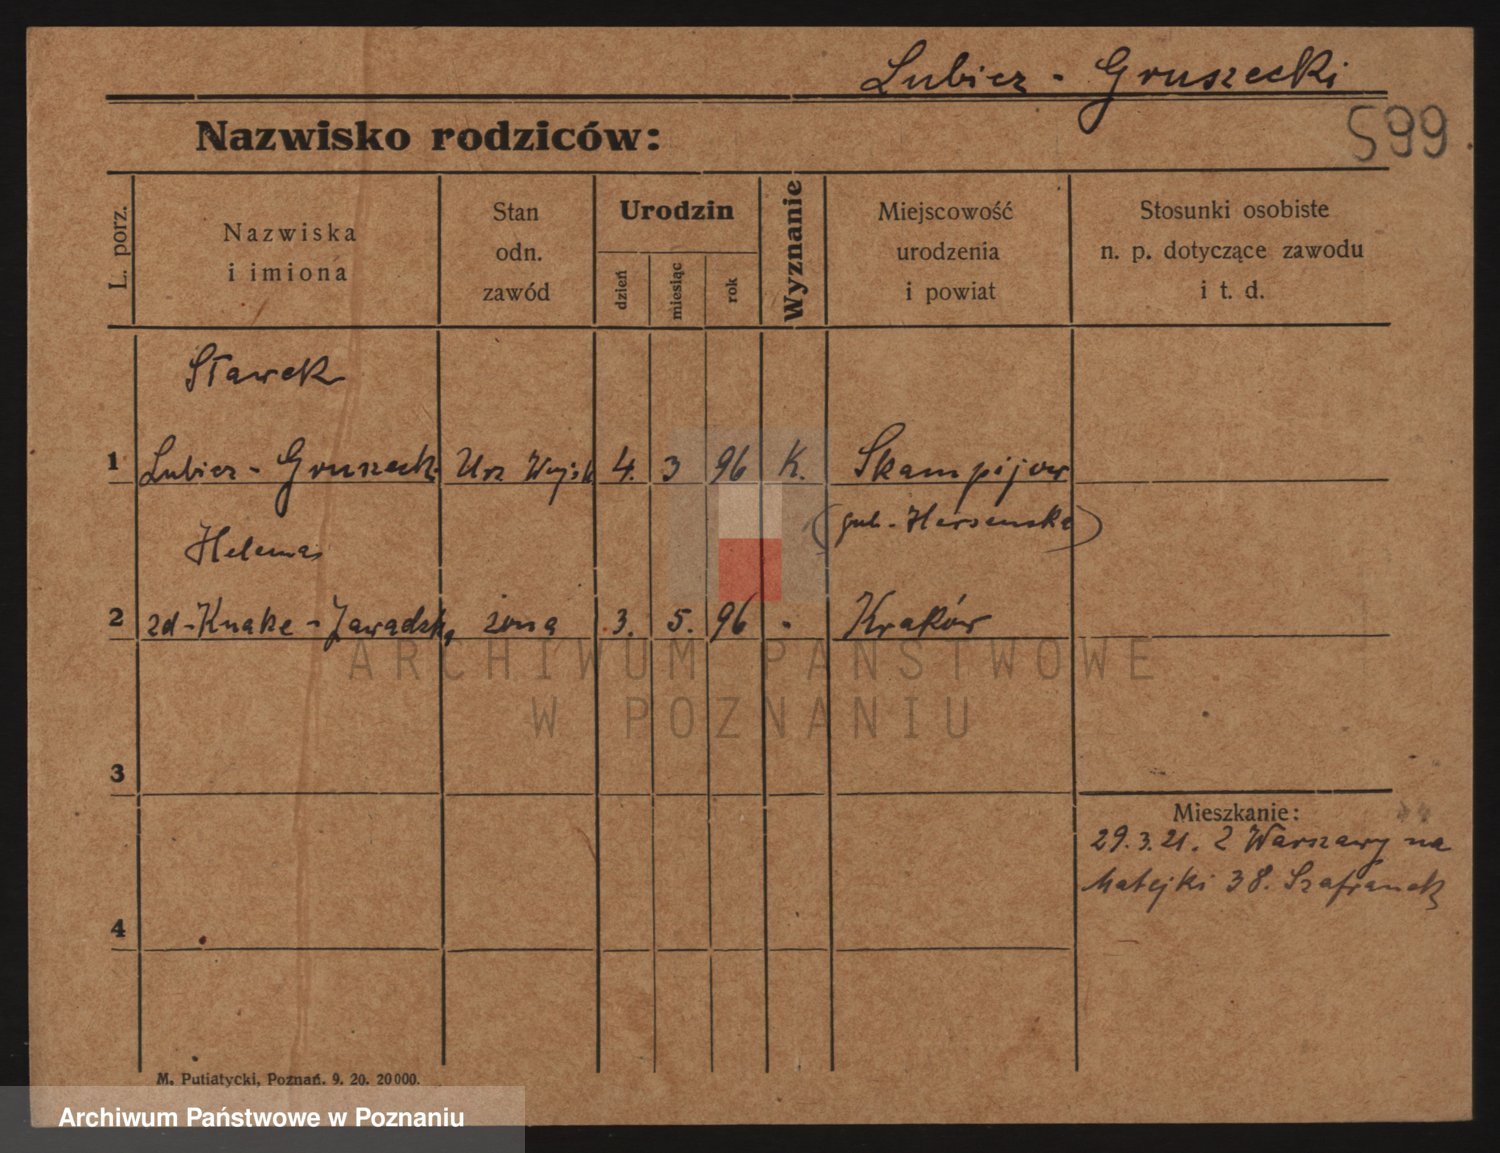 Lubicz - Gruszecki
599
Nazwisko rodziców:
L. porz.
Nazwiska
i imiona
Stan
odn.
zawód
Urodzin
dzień
miesiąc
rok
Wyznanie
Miejscowość
urodzenia
i powiat
Stosunki osobiste
n. p. dotyczące zawodu
i t. d.
Sławek
1 Lubicz - Gruszecki Urz Wojsk 4. 3 96 K. Skampijow
(gub. Hersenska)
Helena
2 zd - Knake - Zawadzką żona 3. 5. 96 - Kraków
ARCHIWUM PAŃSTWOWE
W POZNANIU
3
Mieszkanie:
29.3.21. Z Warszawy na
Matejki 38. Szafranek
4
M. Putiatycki, Poznań. 9. 20. 20000.
Archiwum Państwowe w Poznaniu